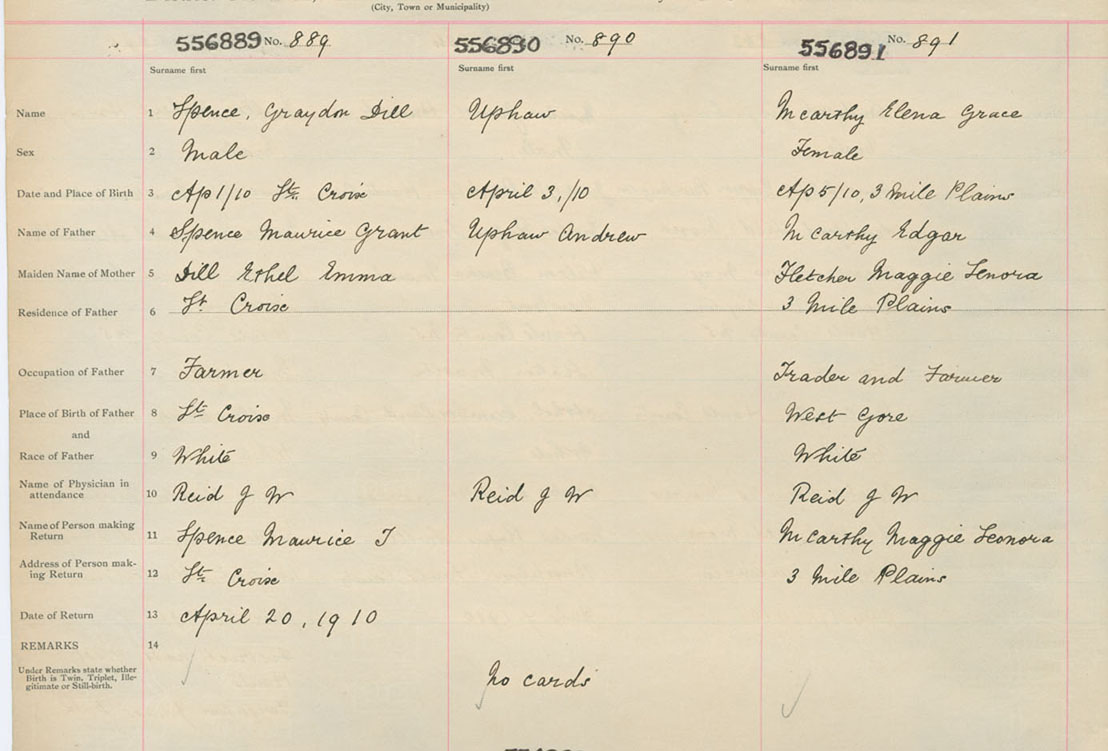 (City, Town or Municipality)
556889 No. 889 556890 No. 890 556891 No. 891
Surname first Surname first Surname first
Name 1 Spence, Graydon Dill Uphaw Mcarthy Elena Grace
Sex 2 Male Female
Date and Place of Birth 3 Ap 1/10 St. Croix April 3,/10 Ap 5/10, 3 Mile Plains
Name of Father 4 Spence Maurice Grant Uphaw Andrew Mcarthy Edgar
Maiden Name of Mother 5 Dill Ethel Emma Fletcher Maggie Lenora
Residence of Father 6 St Croix 3 Mile Plains
Occupation of Father 7 Farmer Trader and Farmer
Place of Birth of Father 8 St Croix West Gore
and
Race of Father 9 White White
Name of Physician in
attendance 10 Reid J W Reid J W Reid J W
Name of Person making
Return 11 Spence Maurice T Mcarthy Maggie Leonora
Address of Person mak-
ing Return 12 St. Croix 3 Mile Plains
Date of Return 13 April 20, 1910
REMARKS 14
Under Remarks state whether
Birth is Twin, Triplet, Ille-
gitimate or Still-birth.
No cards